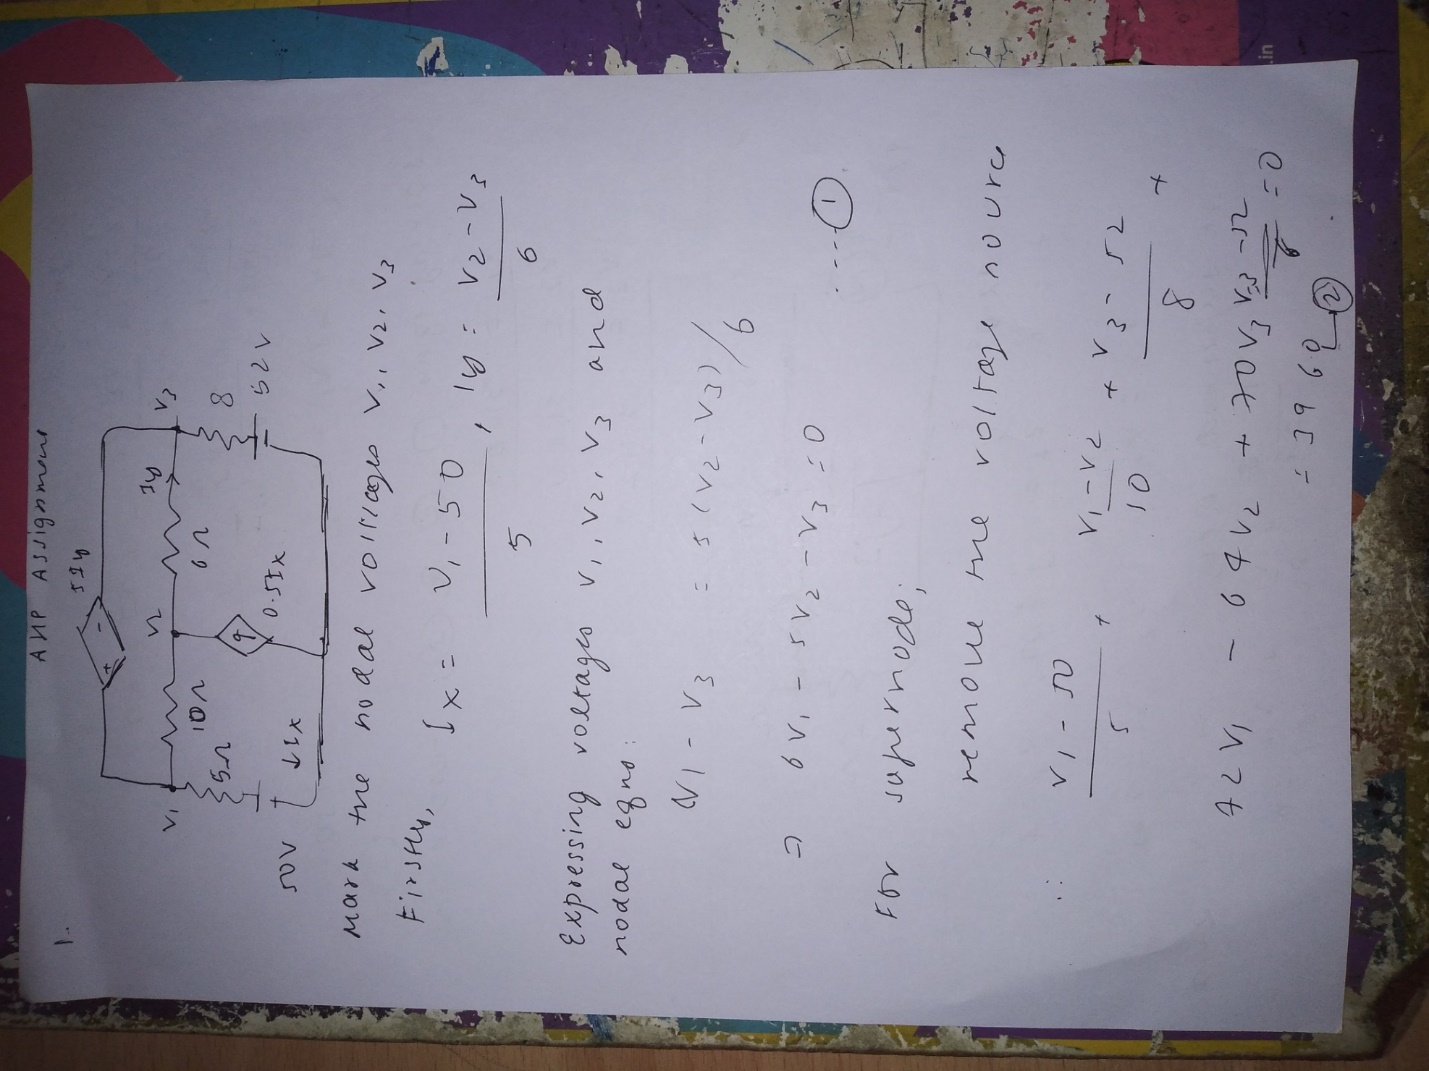 AHP Assignment
1.
5Iy
+ -
V1
V2
V3
10Ω
6Ω
Iy
5Ω
8
50V
↓Ix
0.5Ix
52V
Mark the nodal voltages V1, V2, V3
Firstly, Ix = V1 - 50 / 5 , Iy = V2 - V3 / 6
Expressing voltages V1, V2, V3 and
nodal eqns:
(V1 - V3 = 5(V2 - V3)/6
⇒ 6V1 - 5V2 - V3 = 0 ....①
For supernode,
remove the voltage source
∴ V1 - 50 / 5 + V1 - V2 / 10 + V3 - 52 / 8 +
V3 - V2 / 6 = 0
72V1 - 64V2 + 70V3
= 3960 ②
.in